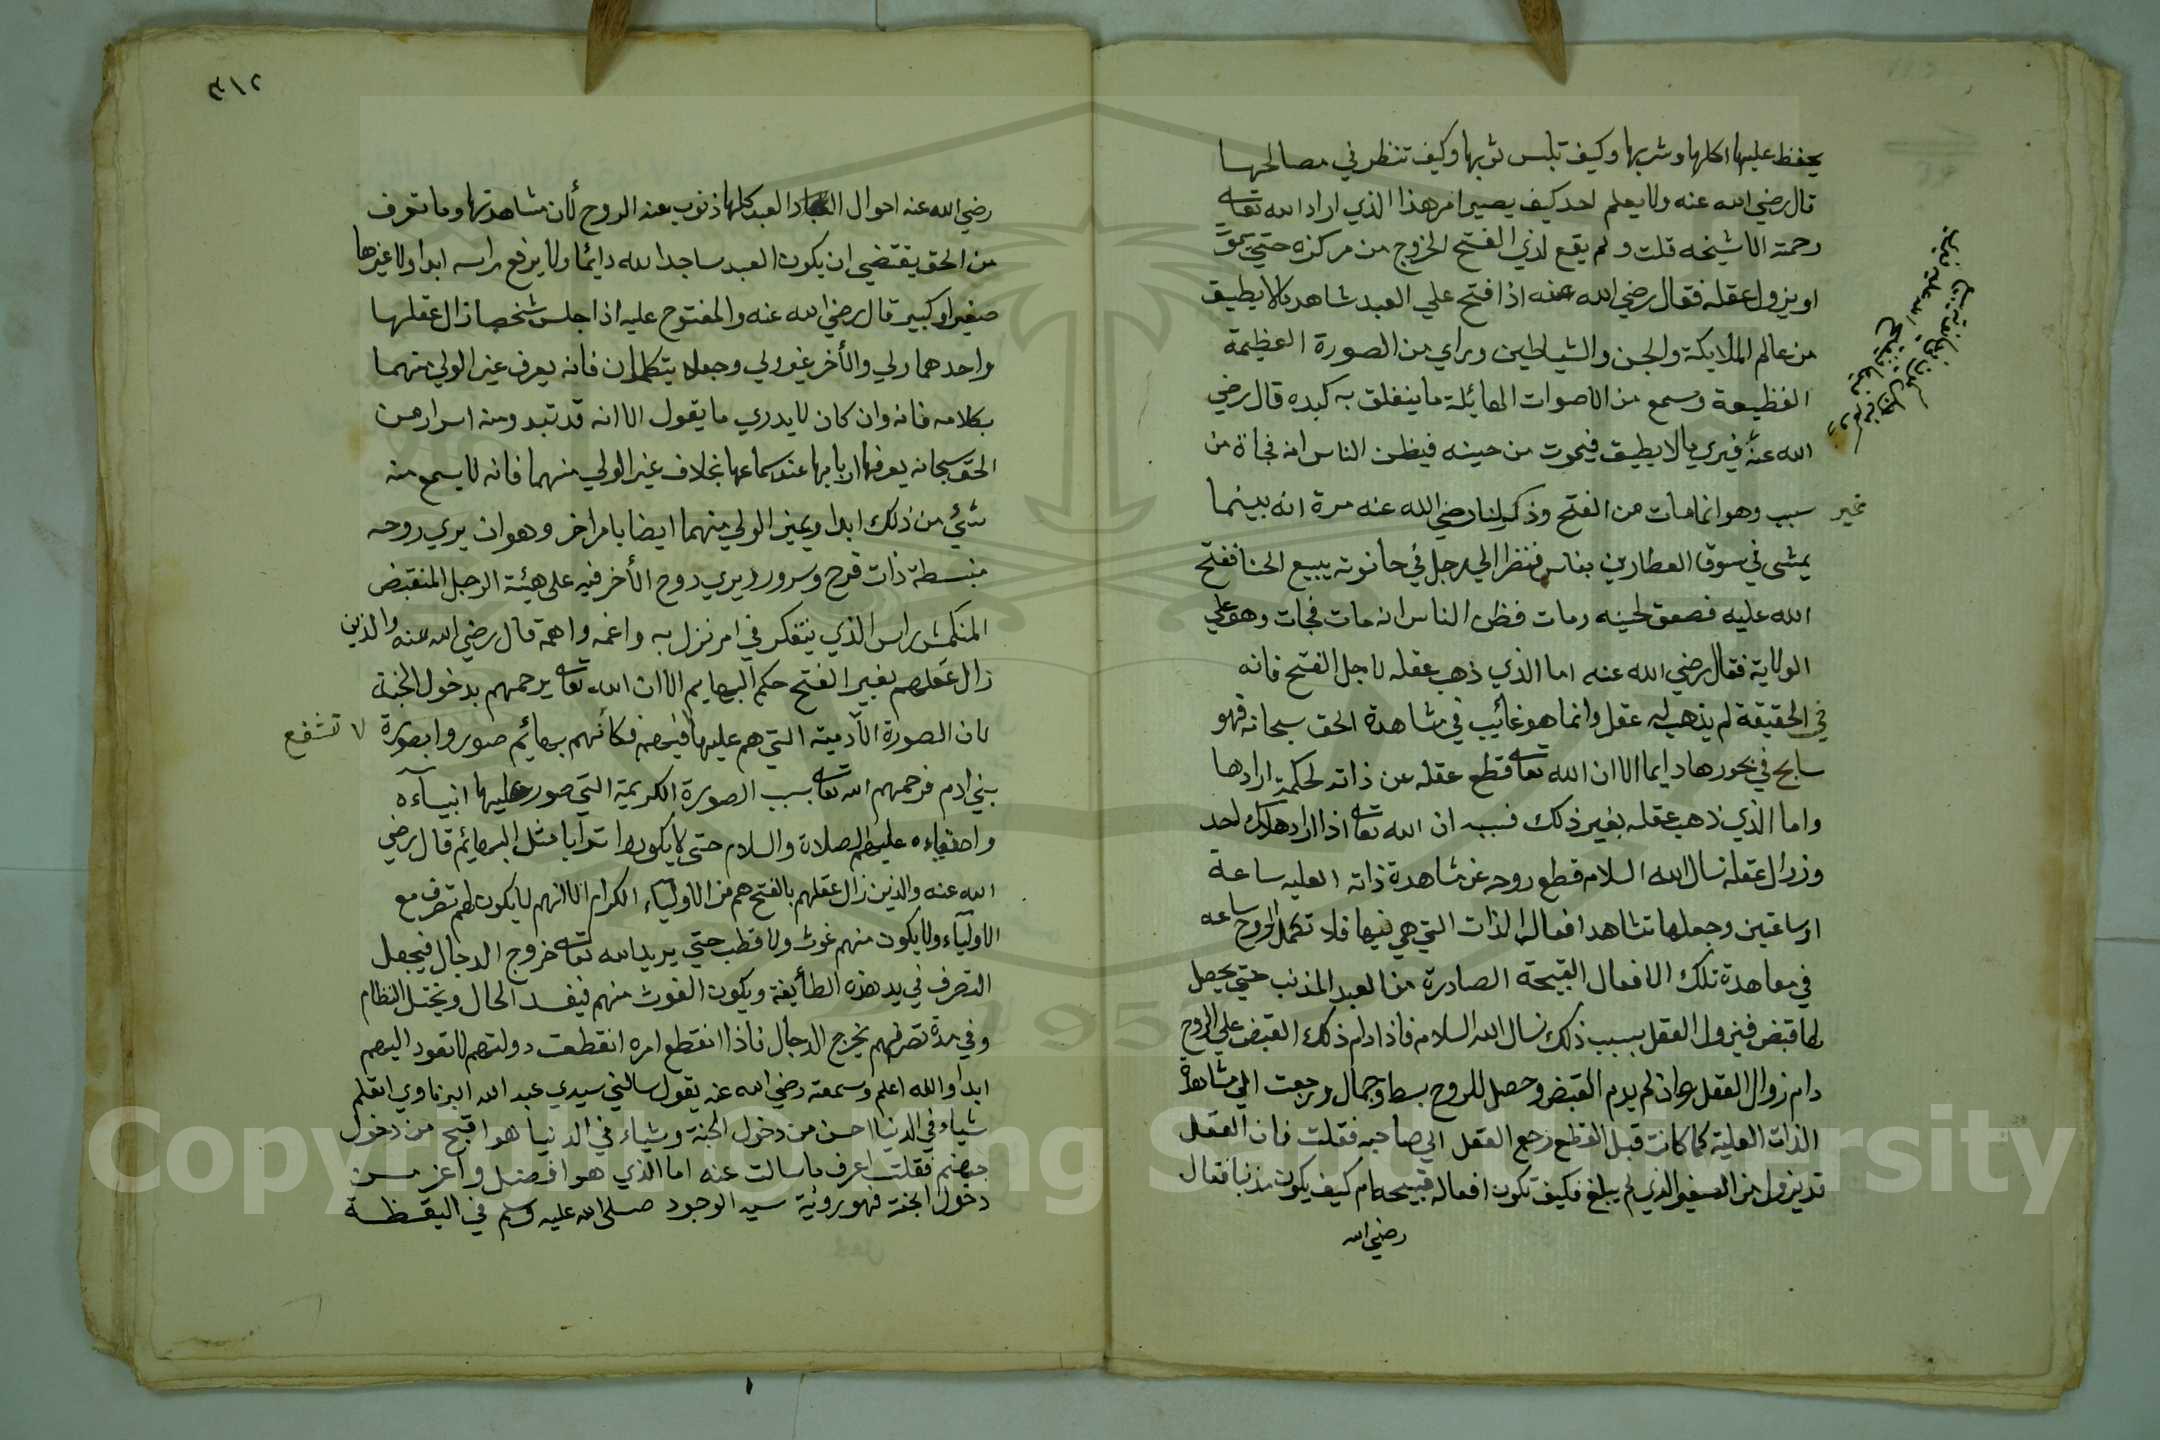 يحفظ عليها اكلها وشربها وكيف تلبس ثوبها وكيف تنظر في مصالحها
قال رضي الله عنه ولا يعلم احد كيف يصير امر هذا الذي اراد الله تعالى
رحمته الا شيخه قلت ولم يقع لذي الفتح الخروج من مركزه حتي يموت
او يزول عقله فقال رضي الله عنه اذا فتح علي العبد شاهد ما لا يطيق
من عالم الملايكة والجن والشياطين وراي من الصورة العظيمة
الفظيعة وسمع من الاصوات الهائلة ما ينفلق به كبده قال رضي
الله عنه فيري ما لا يطيق فيموت من حينه فيظن الناس انه فجاة من
غير سبب وهو انما مات من الفتح وذكر لنا رضي الله عنه مرة انه بينما
يمشى في سوق العطارين بفاس فنظر الي رجل في حانوته يبيع الحنا ففتح
الله عليه فصعق لحينه ومات فظن الناس انه مات فجات وهو علي
الولاية فقال رضي الله عنه اما الذي ذهب عقله لاجل الفتح فانه
في الحقيقة لم يذهب له عقل وانما هو غائب في مشاهدة الحق سبحانه فهو
سابح في بحورها دايما الا ان الله تعالى قطع عقله عن ذاته لحكمة ارادها
واما الذي ذهب عقله بغير ذلك فسببه ان الله تعالى اذا اراد هلاك احد
وزوال عقله نسال الله السلامه قطع روحه عن مشاهدة ذاته العليه ساعة
او ساعتين وجعلها تشاهد افعال الذات التي هي فيها فلا تكمل الروح ساعه
في معاهدة تلك الافعال القبيحة الصادرة من العبد المذنب حتي يحصل
لها قبض فيزول العقل بسبب ذلك نسال الله السلامه فاذا دام ذلك القبض علي الروح
دام زوال العقل وان لم يدم القبض وحصل للروح بسط وجمال ورجعت الي مشاهدة
الذات العلية كما كانت قبل القطع رجع العقل الي صاحبه فقلت فان العقل
قد يزول من الصغير الذي لم يبلغ فكيف تكون افعاله قبيحه ام كيف يكون مذنبا فقال
رضي الله
٣١٢
رضي الله عنه احوال العبد كلها ذنوب عند الروح لأن مشاهدتها وما تعرف
من الحق يقتضي ان يكون العبد ساجدا لله دايما ولا يرفع راسه ابدا ولا غيرها
صغيرا وكبير قال رضي الله عنه والمفتوح عليه اذا جلس شخصا زال عقلها
واحدهما ولي والأخر غير ولي وجعلا يتكلمان فانه يعرف غير الولي منهما
بكلامه فانه وان كان لا يدري ما يقول الا انه قد تبدو منه اسرار من
الحق سبحانه يعرفها اربابها عند سماعها بخلاف غير الولي منهما فانه لا يسمع منه
شئ من ذلك ابدا ويميز الولي منهما ايضا بامر اخر وهو ان يري روحه
منبسطة ذات فرح وسرور ويري روح الأخر فيه على هيئة الرجل المنقبض
المنكمش راس الذي يتفكر في امر نزل به واغمه واهمه قال رضي الله عنه والذين
زال عقلهم بغير الفتح حكم البهايم الا ان الله تعالى يرحمهم بدخول الجنة
لان الصورة الآدمية التي هم عليها فكأنهم بهائم صوروا بصورة لا تشفع
بني ادم فرحمهم الله تعالى بسبب الصورة الكريمة التي صور عليها انبيآءه
واصفياءه عليهم الصلاة والسلام حتى لا يكونوا ترابا مثل البهائم قال رضي
الله عنه والذين زال عقلهم بالفتح هم من الاوليآء الكرام الا انهم لا يكون لهم تصرف مع
الاوليآء ولا يكون منهم غوث ولا قطب حتي يريد الله تعالى خروج الدجال فيجعل
التصرف في يد هذه الطائفة ويكون الغوث منهم فيفسد الحال ويختل النظام
وفي مدة تصرفهم يخرج الدجال فاذا انقطع امره انقطعت دولتهم لا تعود اليهم
ابدا والله اعلم وسمعته رضي الله عنه يقول سالني سيدي عبد الله البرناوي اتعلم
شياء في الدنيا احسن من دخول الجنة وشياء في الدنيا هو اقبح من دخول
جهنم فقلت اعرف ما سالت عنه اما الذي هو افضل واعز من
دخول الجنة فهو رؤية سيد الوجود صلى الله عليه وسلم في اليقظة
Copyright © King Saud University
1957